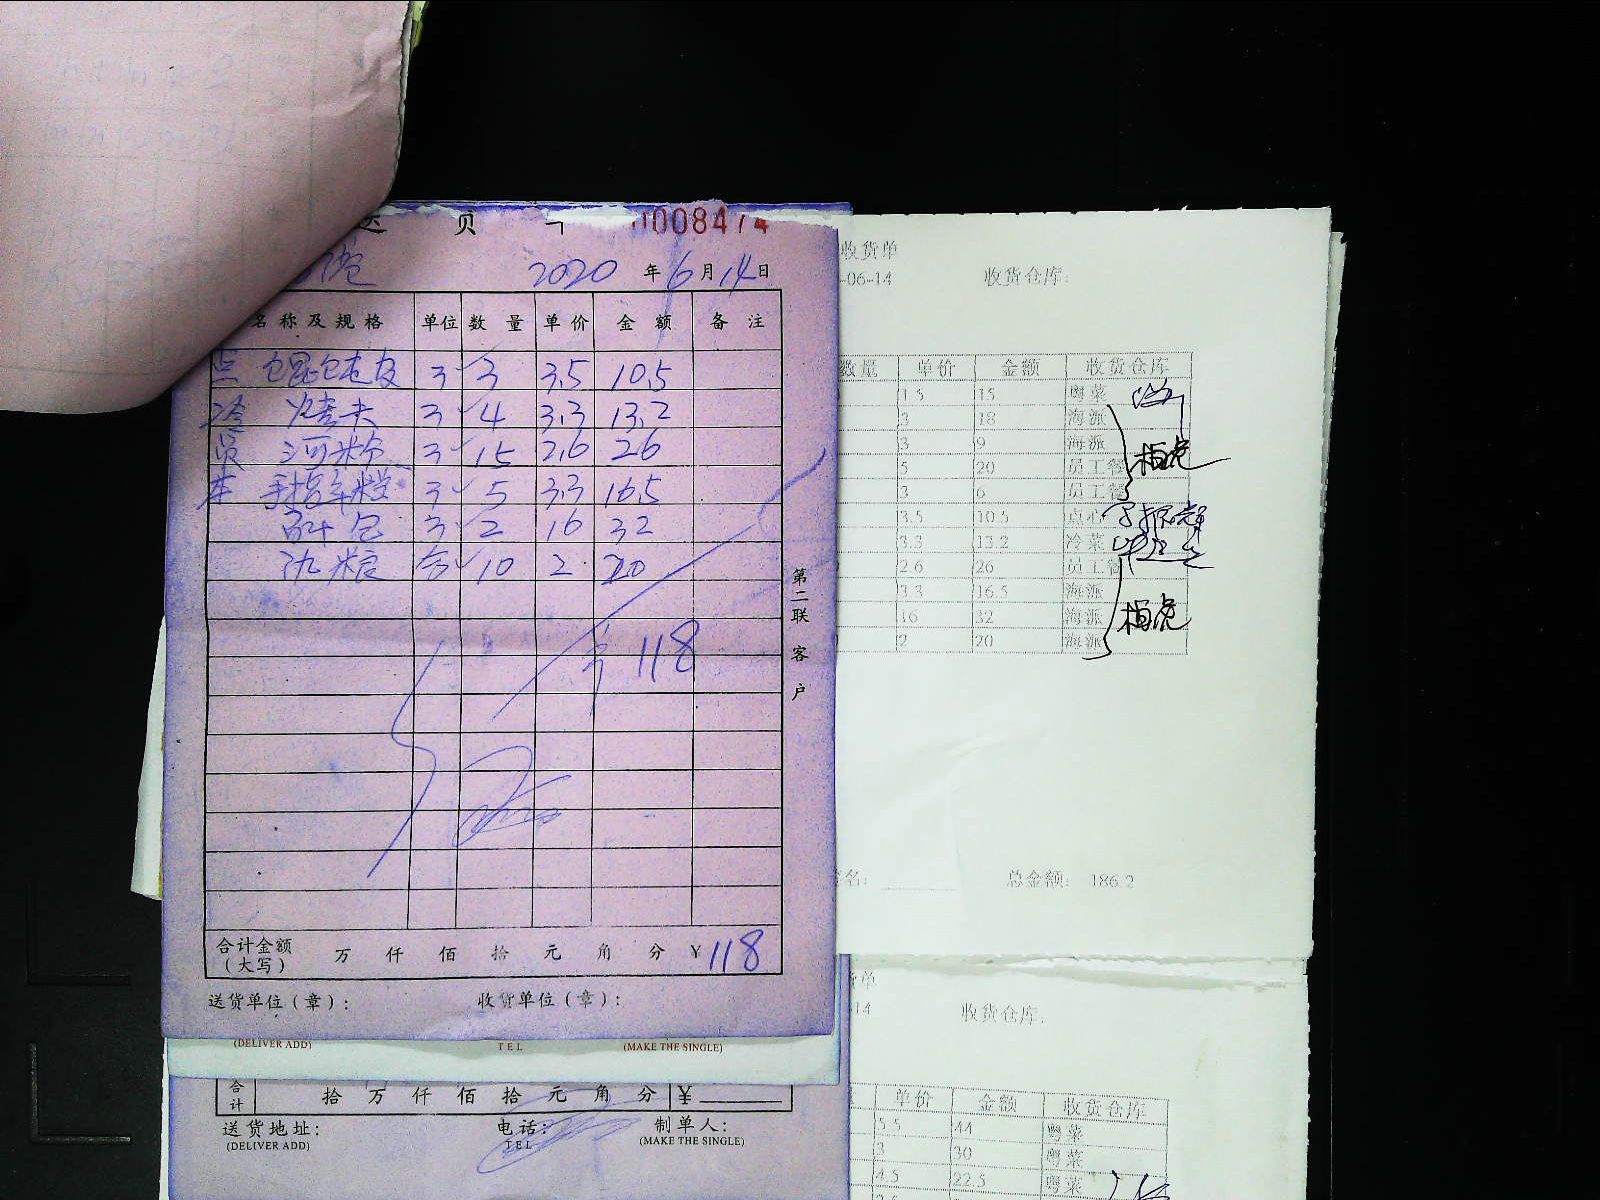 送 货 单 0008474
2020 年 6 月 14 日
名称及规格 单位 数量 单价 金额 备注
点 3 3 3.5 10.5
冷 3 4 3.3 13.2
员 河粉 3 15 2.6 26
3 5 3.3 16.5
百叶包 3 2 16 32
10 2 20
118
第二联 客户
合计金额（大写） 万 仟 佰 拾 元 角 分 ¥118
送货单位（章）： 收货单位（章）：
(DELIVER ADD) TEL (MAKE THE SINGLE)
合计 拾 万 仟 佰 拾 元 角 分 ¥
送货地址： 电话： 制单人：
(DELIVER ADD) TEL (MAKE THE SINGLE)
收货单
-06-14 收货仓库：
数量 单价 金额 收货仓库
1.5 15 粤菜
3 18 海派
3 9 海派
5 20 员工餐
3 6 员工餐
3.5 10.5 点心
3.3 13.2 冷菜
2.6 26 员工餐
3.3 16.5 海派
16 32 海派
2 20 海派
名： 总金额： 186.2
货单
14 收货仓库：
单价 金额 收货仓库
5.5 44 粤菜
3 30 粤菜
4.5 22.5 粤菜